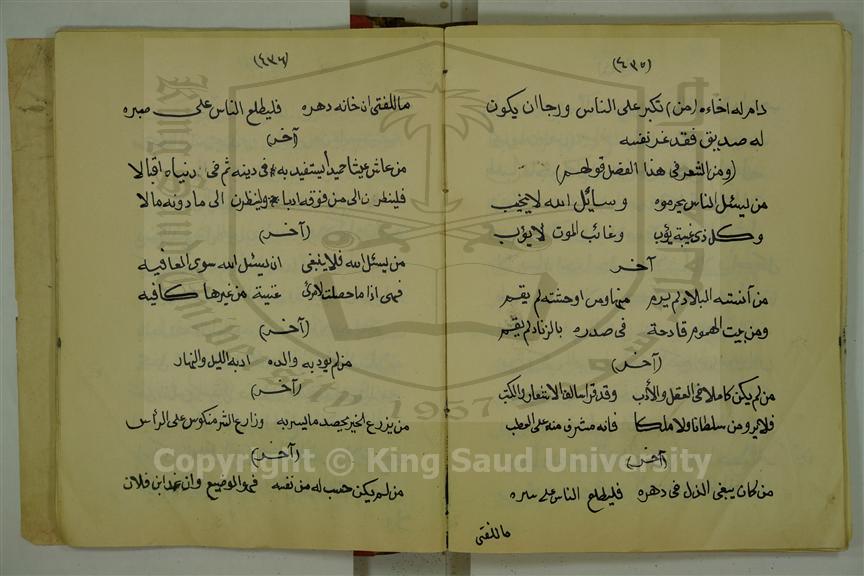 (٤٣٥)
دام له اخاءه (من) تكبر على الناس ورجا ان يكون
له صديق فقد غر نفسه
(ومن الشعر فى هذا الفصل قولهم)
من يسئل الناس يحرموه وسايئل الله لا يخيب
وكل ذى غيبة يؤب وغائب الموت لا يؤب
آخر
من آنسته البلاد لم يرم منها ومن اوحشته لم يقم
ومن يبت الهموم قادحة فى صدره بالزناد لم يقم
(آخر)
من لم يكن كاملا فى العقل والأدب وقد قرا سالف الاشعار والكتب
فلا يرو من سلطانا ولا ملكا فانه مشرف منه على العطب
(آخر)
من كان يبغى الذل فى دهره فليطلع الناس على سره
ما للفتى
(٤٣٦)
ما للفتى ان خانه دهره فليطلع الناس على صبره
(آخر)
من عاش عيشا حميدا يستفيد به فى دينه ثم فى دنياه اقبالا
فلينظرن الى من فوقه ادبا ولينظرن الى ما دونه مالا
(آخر)
من يسئل الله فلا ينبغى ان يسئل الله سوى العافيه
فهى اذا ما حصلت لامرئ غنية من غيرها كافيه
(آخر)
من لم يودبه والده ادبه الليل والنهار
(آخر)
من يزرع الخير يحصد ما يسر به وزارع الشر منكوس على الرأس
(آخر)
من لم يكن حسب له من نفسه فهو الوضيع وان غدا ابن فلان
Copyright © King Saud University
King Saud University
1957